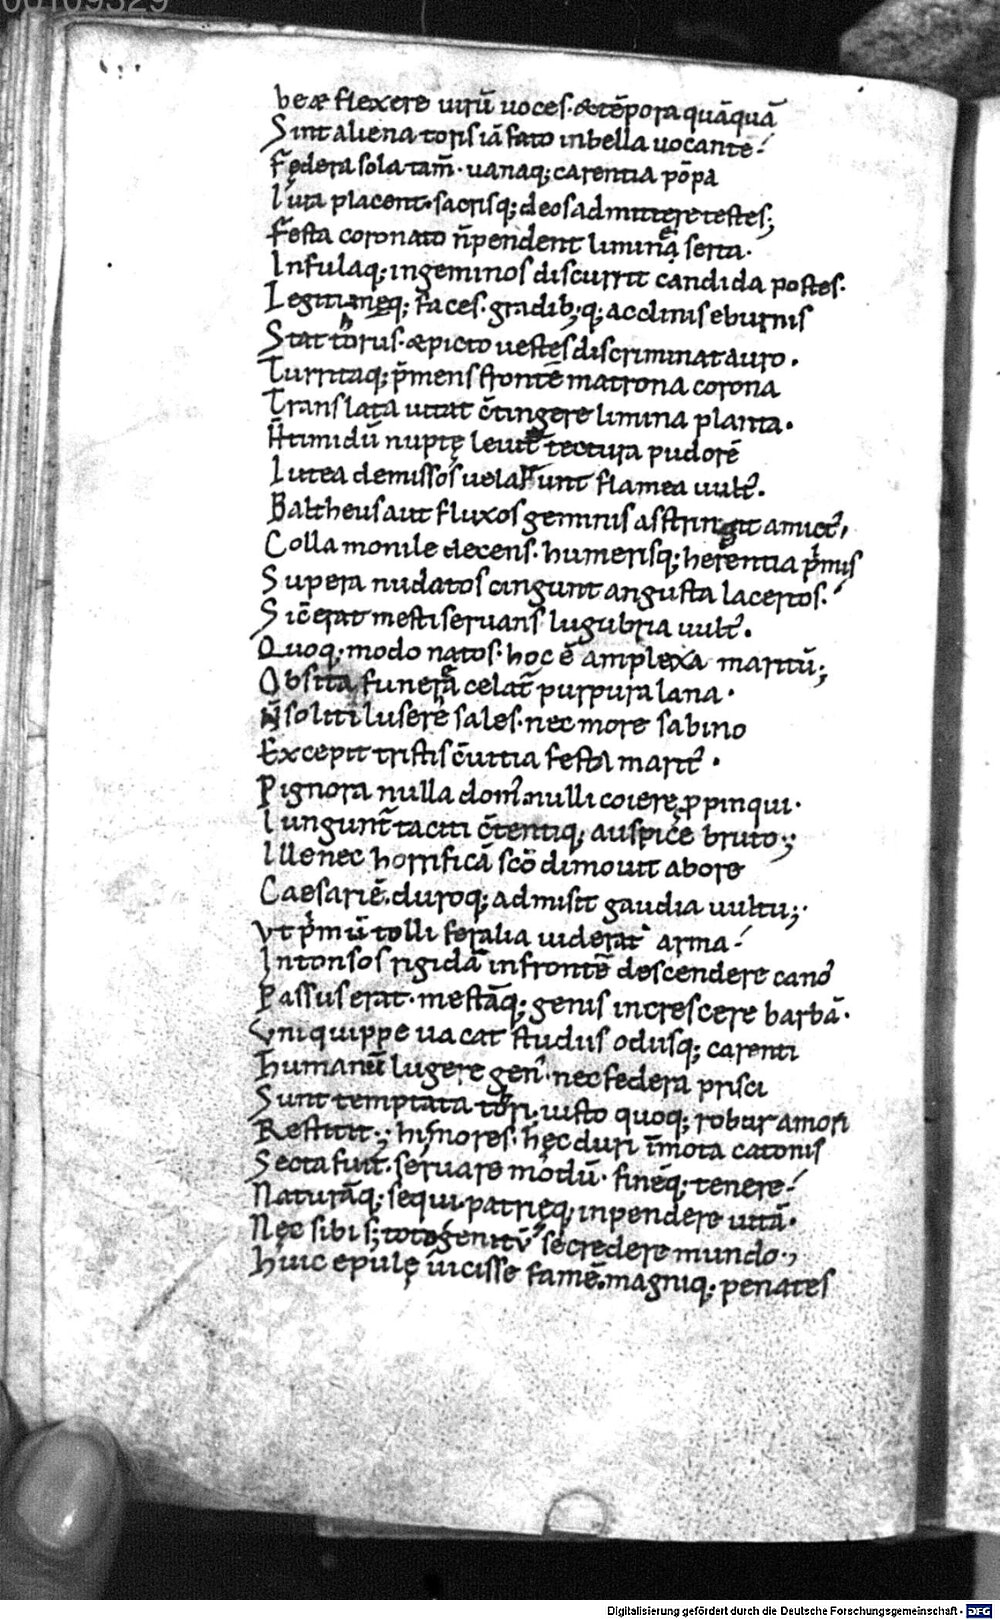 00109329
heæ flexere uirū uoces. & tēpora quāquā
Sint aliena toris iā fato in bella uocante.
Fędera sola tam̄. uanaq; carentia pōpa
Iura placent. sacrisq; deos admittere testes;
Festa coronato n̄ pendent limina serta.
Infulaq; in geminos discurrit candida postes.
Legitimęq; faces. gradib;q; acclinis eburnis
Stat torus. & picto uestes discriminat auro.
Turritaq; p̄mens frontē matrona corona
Translata uitat c̄tingere limina planta.
N̄ timidū nuptę leuit̄ tectura pudorē
Lutea demissos uelarunt flamea uult᾽.
Baltheus aut fluxos gemmis astrinxit amict᾽,
Colla monile decens. humerisq; herentia p̄mis
Supera nudatos cingunt angusta lacertos.
Sic̄ erat mesti seruans lugubria uult᾽.
Quoq; modo natos. hoc ē amplexa maritū;
Obsita funera celat̄ purpura lana.
N̄ soliti lusere sales. nec more sabino
Excepit tristis c̄uitia festa marit᾽.
Pignora nulla dom᾽. nulli coiere ꝓpinqui.
Iungunt̄ taciti c̄tentiq; auspice bruto;
Ille nec horrificā sc̄o dimouit abore
Caesariē. duroq; admisit gaudia uultu;
Vt p̄mū tolli feralia uiderat arma.
Intonsos rigidā in frontē descendere cano᾽
Passus erat. mestāq; genis increscere barbā.
Vni quippe uacat studiis odiisq; carenti
Humanū lugere gen᾽. nec federa prisci
Sunt temptata tori. iusto quoq; robur amori
Restitit; hi mores. hęc duri īmota catonis
Secta fuit. seruare modū. finēq; tenere.
Naturāq; sequi. patrięq; inpendere uitā.
Nec sibi s; toto genitū se credere mundo.,
Huic epulę uicisse famē. magniq; penates
Digitalisierung gefördert durch die Deutsche Forschungsgemeinschaft - DFG